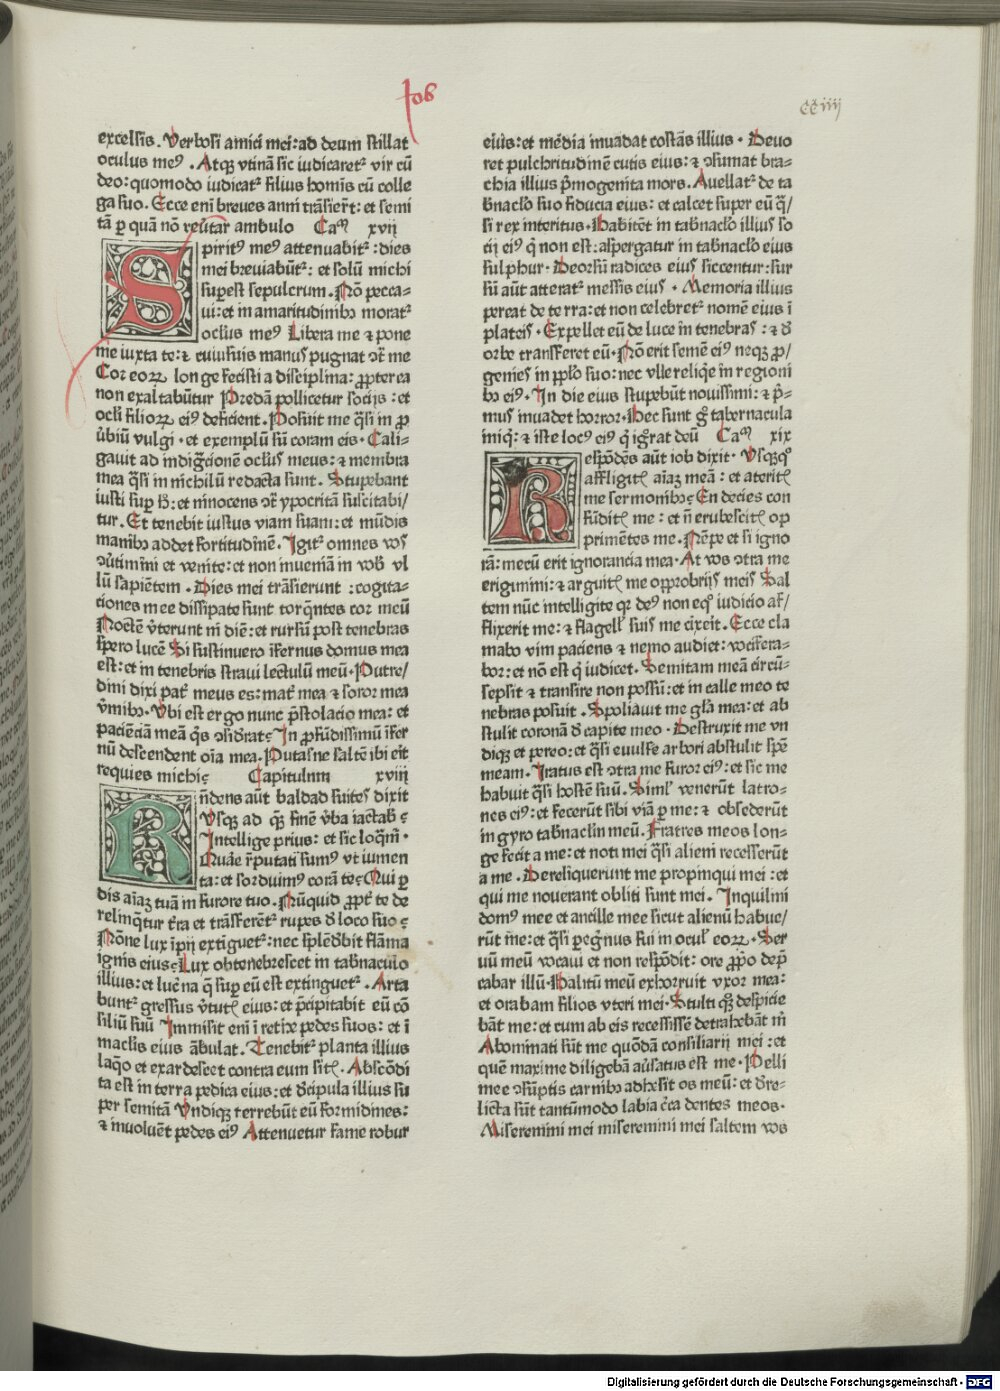 Job
cciiij
excelsis. Verbosi amici mei: ad deum stillat
oculus meꝰ. Atqꝫ vtinā sic iudicaretᷣ vir cū
deo: quomodo iudicatᷣ filius hominis cū colle
ga suo. Ecce eni breues anni trāsierūt: et semi
tā ꝑ quā nō reūtar ambulo Caᵐ xvij
Spiritꝰ meꝰ attenuabitᷣ: dies
mei breuiabūtᷣ: et solū michi
supest sepulcrum. Nō pecca-
ui: et in amaritudinibꝰ moratᷣ
oclūs meꝰ Libera me ⁊ pone
me iuxta te: ⁊ cuiusuis manus pugnat ɔ̄tᷣ me
Cor eoꝝ longe fecisti a disciplina: ꝓpterea
non exaltabūtur Predā pollicetur socijs: et
ocli filioꝝ eiꝰ deficient. Posuit me q̄si in ꝓ
ūbiū vulgi. et exemplū sū coram eis. Cali-
gauit ad indigc̄ionē oclūs meus: ⁊ membra
mea q̄si in nichilū redacta sunt. Stupebant
iusti suꝑ h̄: et ninocens ɔ̄tᷣ ypocritā suscitabi/
tur. Et tenebit iustus viam suam: et mūdis
manibꝰ addet fortitudinē. Igitᷣ omnes vos
ɔūtimini et venite: et non inueniā in vob̄ vl
lū sapiētem. Dies mei trāsierunt: cogita-
tiones mee dissipate sunt torq̄ntes cor meū
Noctē v̄terunt ī diē: et rursū post tenebras
spero lucē Si sustinuero īfernus domus mea
est: et in tenebris straui lectulū meū. Putre/
dini dixi patᷣ meus es: matᷣ mea ⁊ soror mea
v̄mibꝰ. Vbi est ergo nunc p̄stolacio mea: et
pacienciā meā q̄s ɔsid̄rat? In ꝓfūdissimū īfer
nū descendent oīa mea. Putasne saltē ibi eīt
requies michi? Capitulum xviij
Rn̄dens aūt baldad suites dixit
Vsqꝫ ad qꝫ finē v̄ba iactab̄?
Intellige prius: et sic loq̄mᷣ.
Quāe r̄putati sumꝰ vt iumen
ta: et sorduimꝰ corā te? Qui ꝑ
dis aīaꝫ tuā in furore tuo. Nūquid ꝓptᷣ te de
relinq̄tur tr̄ra et trāsferētᷣ rupes d̄ loco suo?
Nōne lux īpij extīguetᷣ: nec splēdebit flāma
ignis eius? Lux obtenebrescet in tabnāculo
illius: et lucn̄a q̄ suꝑ eū est extinguetᷣ. Arta
buntᷣ gressus v̄tutꝭ eius: et p̄cipitabit eū cō
siliū suū Immisit eni ī rethe pedes suos: et ī
maclis eius ābulat. Tenebitᷣ planta illius
laq̄o et exardescet contra eum sitꝭ. Abscōdi
ta est in terra pedica eius: et d̄cipula illius su
per semitā Vndiqꝫ terrebūt eū formidines:
⁊ inuoluēt pedes eiꝰ Attenuetur fame robur
eius: et media inuadat costās illius. Deuo
ret pulchritudinē cutis eius: ⁊ ɔsumat bra-
chia illius p̄mogenita mors. Auellatᷣ de ta
bnāclo suo fiducia eius: et calcet super eū q̄/
si rex interitus. Habitēt in tabnāclo illius so
cij eiꝰ q̄ non est: aspergatur in tabnāclo eius
sulphur. Deorsū radices eius siccentur: sur
sū aūt atteratᷣ messis eius. Memoria illius
pereat de terra: et non celebretᷣ nomē eius ī
plateis. Expellet eū de luce in tenebras: ⁊ d̄
orbe transferet eū. Nō erit semē eiꝰ neqꝫ ꝓ/
genies in ppl̄o suo: nec vlle reliq̄e in regioni
bꝰ eiꝰ. In die eius stupebūt nouissimi: ⁊ p̄-
mus inuadet horror. Hec sunt g̊ tabernacula
iniq̄: ⁊ iste locꝰ eiꝰ q̄ ig̊rat deū Caᵐ xix
Respōdēs aūt iob dixit. Vsqꝫq̊
affligitꝭ aīaꝫ meā: et ateritꝭ
me sermonibꝰ? En decies con
fūditꝭ me: et n̄ erubescitꝭ op
primētes me. Nēpe et si igno
rāī: mecū erit ignorancia mea. At vos ɔtra me
erigimini: ⁊ arguitꝭ me opprobrijs meis Sal
tem nūc intelligite qꝛ deꝰ non eq̊ iudicio af/
flixerit me: ⁊ flagell' suis me cixeit. Ecce cla
mabo vim paciens ⁊ nemo audiet: vocifera-
bor: et nō est q̄ iudicet. Semitam meā circū-
sepsit ⁊ transire non possū: et in calle meo te
nebras posuit. Spoliauit me gl̄a mea: et ab
stulit coronā d̄ capite meo. Destruxit me vn
diqꝫ et pereo: et q̄si euulse arbori abstulit spē
meam. Iratus est ɔtra me furor eiꝰ: et sic me
habuit q̄si hostē suū. Siml' venerūt latro-
nes eiꝰ: et fecerūt sibi viā ꝑ me: ⁊ obsederūt
in gyro tabnāclm̄ meū. Fratres meos lon-
ge fecit a me: et noti mei q̄si alieni recesserūt
a me. Dereliquerunt me propinqui mei: et
qui me nouerant obliti sunt mei. Inquilini
domꝰ mee et ancille mee sicut alienū habue/
rūt me: et q̄si ꝑegr̄nus fui in ocul' eoꝝ. Ser
uū meū vocaui et non respōdit: ore ꝓpō dep̄
cabar illū. Halitū meū exhorruit vxor mea:
et orabam filios vteri mei. Stulti qꝫ despicie
bāt me: et cum ab eis recessissē detrahebāt m̄
Abominati sūt me quōdā consiliarij mei: et
quē maxime diligebā aūsatus est me. Pelli
mee ɔsūptis carnibꝰ adhesit os meū: et d̄re-
licta sūt tantūmodo labia cīca dentes meos.
Miseremini mei miseremini mei saltem vos
Digitalisierung gefördert durch die Deutsche Forschungsgemeinschaft - DFG